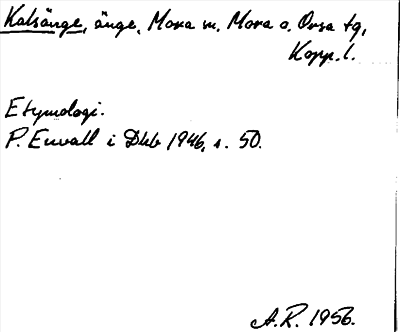 Kalsänge, änge, Mora sn. Mora o. Orsa tg,
Kopp. l.
Etymologi.
P. Envall i Dhb 1946, s. 50.
A.R. 1956.